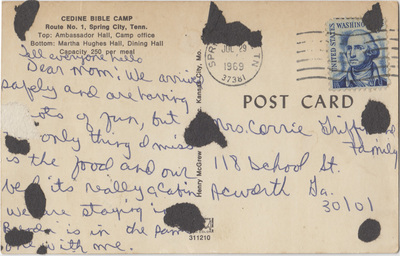 CEDINE BIBLE CAMP
Route No. 1, Spring City, Tenn.
Top: Ambassador Hall, Camp office
Bottom: Martha Hughes Hall, Dining Hall
Capacity 250 per meal
Tell everyone hello
Dear Mom! We arrived
safely and are having
lots of fun, but
only thing I miss
is the food and our
bed its really a Cabin
we are staying in
is in the same
one with me.
Henry McGrew Kansas City, Mo.
311210
SPR TN
JUL 29
1969
37381
UNITED STATES
WASHINGTON
POST CARD
Mrs. Carrie Griff
Family
118 School St.
Acworth Ga.
30101